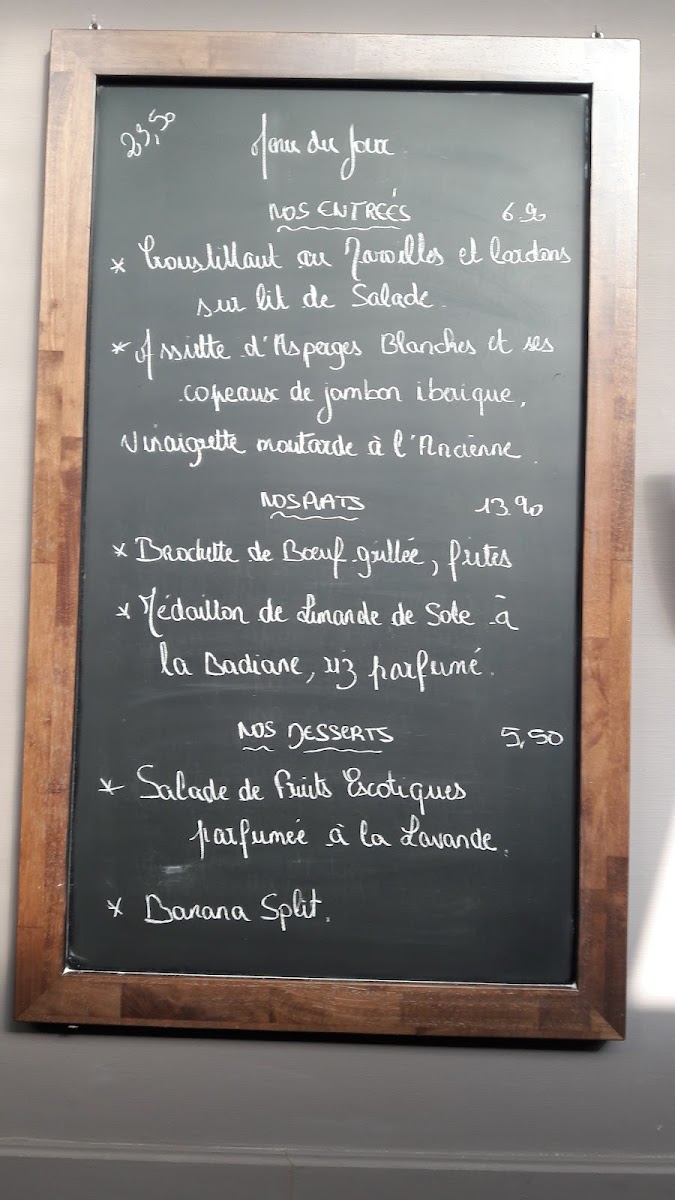 23,50 Menu du Jour
NOS ENTREÉS 6.90
* Croustillant au Maroilles et lardons
sur lit de Salade.
* Assiette d'Asperges Blanches et ses
copeaux de jambon iberique,
Vinaigrette moutarde à l'Ancienne.
NOS PLATS 13.90
* Brochette de Bœuf grillée, frites
* Médaillon de Limande de Sole à
la Badiane, riz parfumé.
NOS DESSERTS 5,50
* Salade de Fruits Exotiques
parfumée à la Lavande.
* Banana Split.